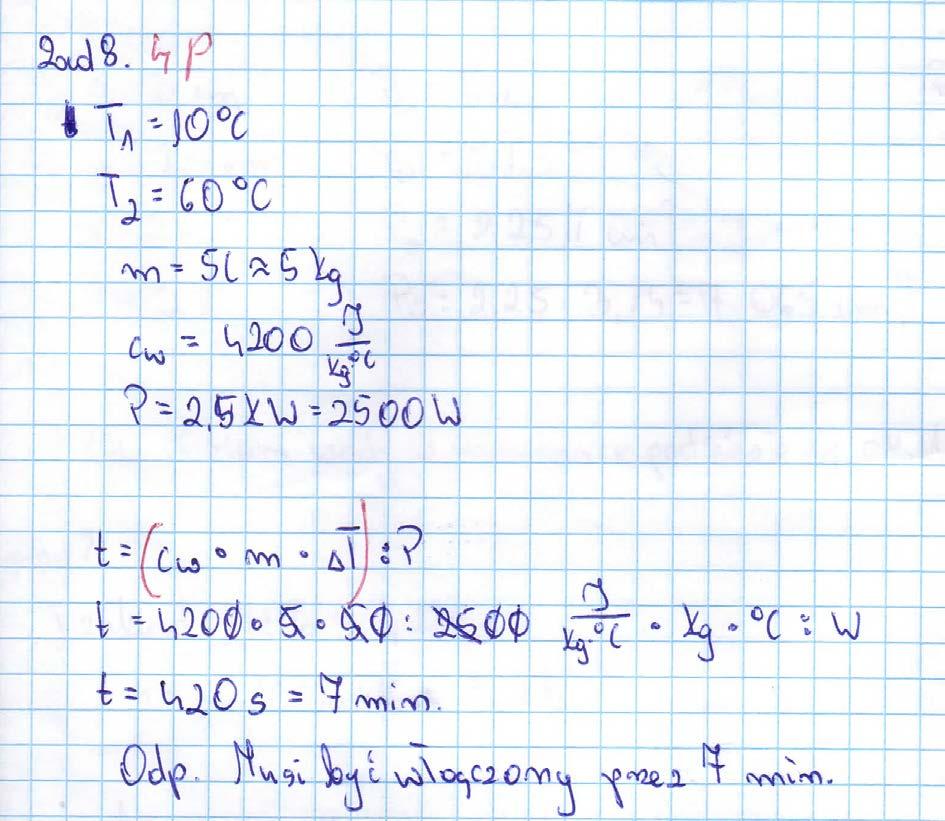 Zad 8. 4 p
T₁ = 10°C
T₂ = 60°C
m = 5l ≈ 5 kg
cw = 4200 J/kg·°C
P = 2,5 kW = 2500 W
t = (cw · m · ΔT) : P
t = 4200 · 5 · 50 : 2500 J/kg·°C · kg · °C : W
t = 420 s = 7 min.
Odp. Musi być włączony przez 7 min.